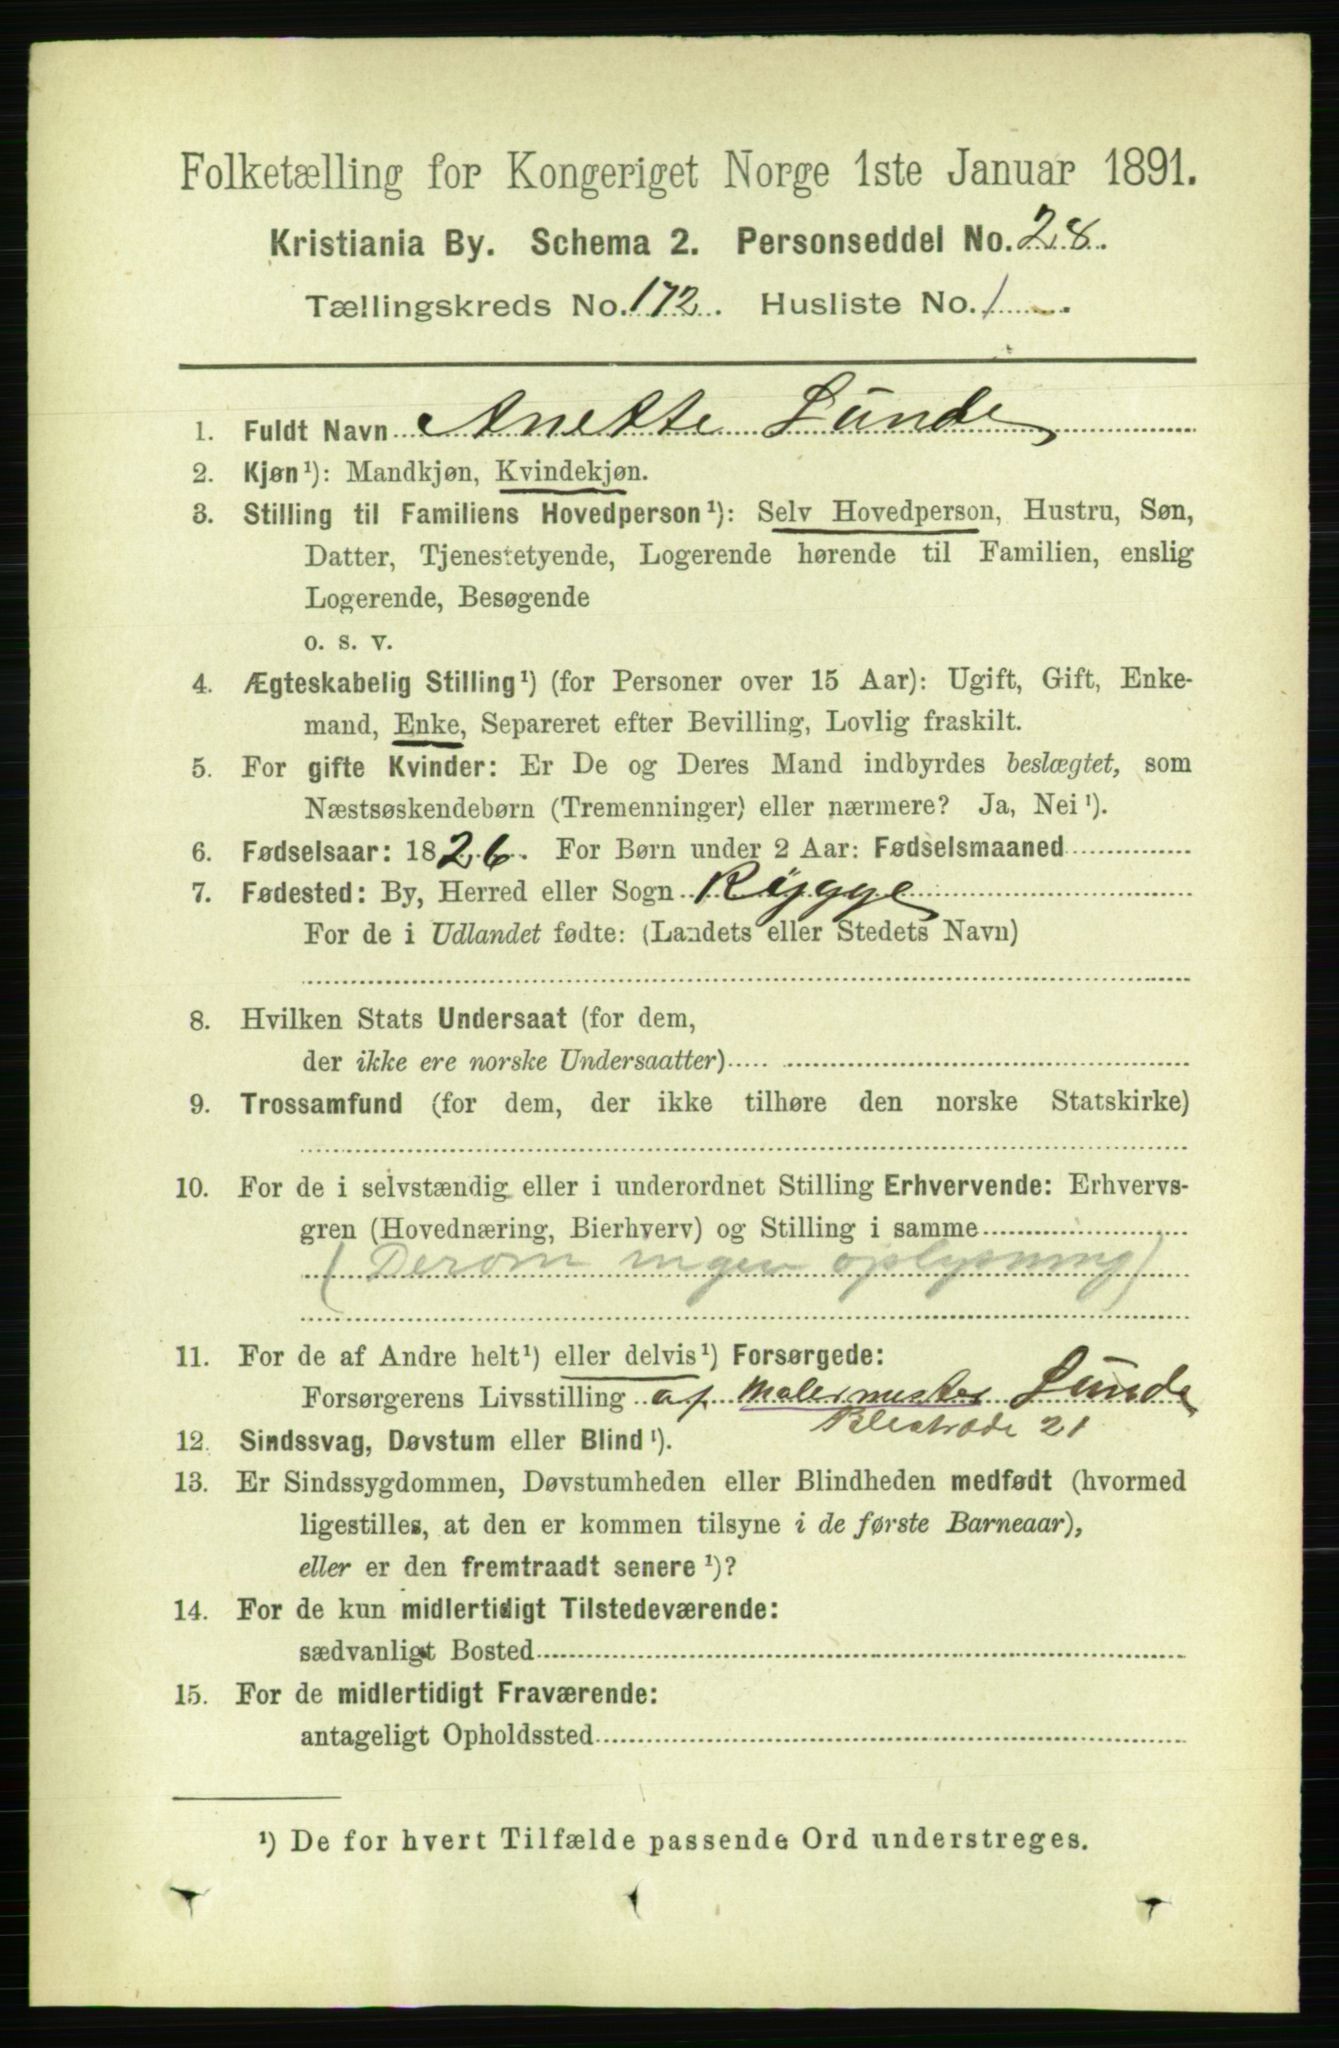 Folketælling for Kongeriget Norge 1ste Januar 1891.
Kristiania By. Schema 2. Personseddel No. 28.
Tællingskreds No. 172. Husliste No. 1
1. Fuldt Navn Anette Lunde
2. Kjøn¹): Mandkjøn, Kvindekjøn.
3. Stilling til Familiens Hovedperson¹): Selv Hovedperson, Hustru, Søn,
Datter, Tjenestetyende, Logerende hørende til Familien, enslig
Logerende, Besøgende
o. s. v.
4. Ægteskabelig Stilling¹) (for Personer over 15 Aar): Ugift, Gift, Enke-
mand, Enke, Separeret efter Bevilling, Lovlig fraskilt.
5. For gifte Kvinder: Er De og Deres Mand indbyrdes beslægtet, som
Næstsøskendebørn (Tremenninger) eller nærmere? Ja, Nei¹).
6. Fødselsaar: 1826. For Børn under 2 Aar: Fødselsmaaned
7. Fødested: By, Herred eller Sogn Rygge
For de i Udlandet fødte: (Landets eller Stedets Navn)
8. Hvilken Stats Undersaat (for dem,
der ikke ere norske Undersaatter)
9. Trossamfund (for dem, der ikke tilhøre den norske Statskirke)
10. For de i selvstændig eller i underordnet Stilling Erhvervende: Erhvervs-
gren (Hovednæring, Bierhverv) og Stilling i samme
(Derom ingen oplysning)
11. For de af Andre helt¹) eller delvis¹) Forsørgede:
Forsørgerens Livsstilling af Malermester Lunde
21
12. Sindssvag, Døvstum eller Blind¹).
13. Er Sindssygdommen, Døvstumheden eller Blindheden medfødt (hvormed
ligestilles, at den er kommen tilsyne i de første Barneaar),
eller er den fremtraadt senere¹)?
14. For de kun midlertidigt Tilstedeværende:
sædvanligt Bosted
15. For de midlertidigt Fraværende:
antageligt Opholdssted
¹) De for hvert Tilfælde passende Ord understreges.